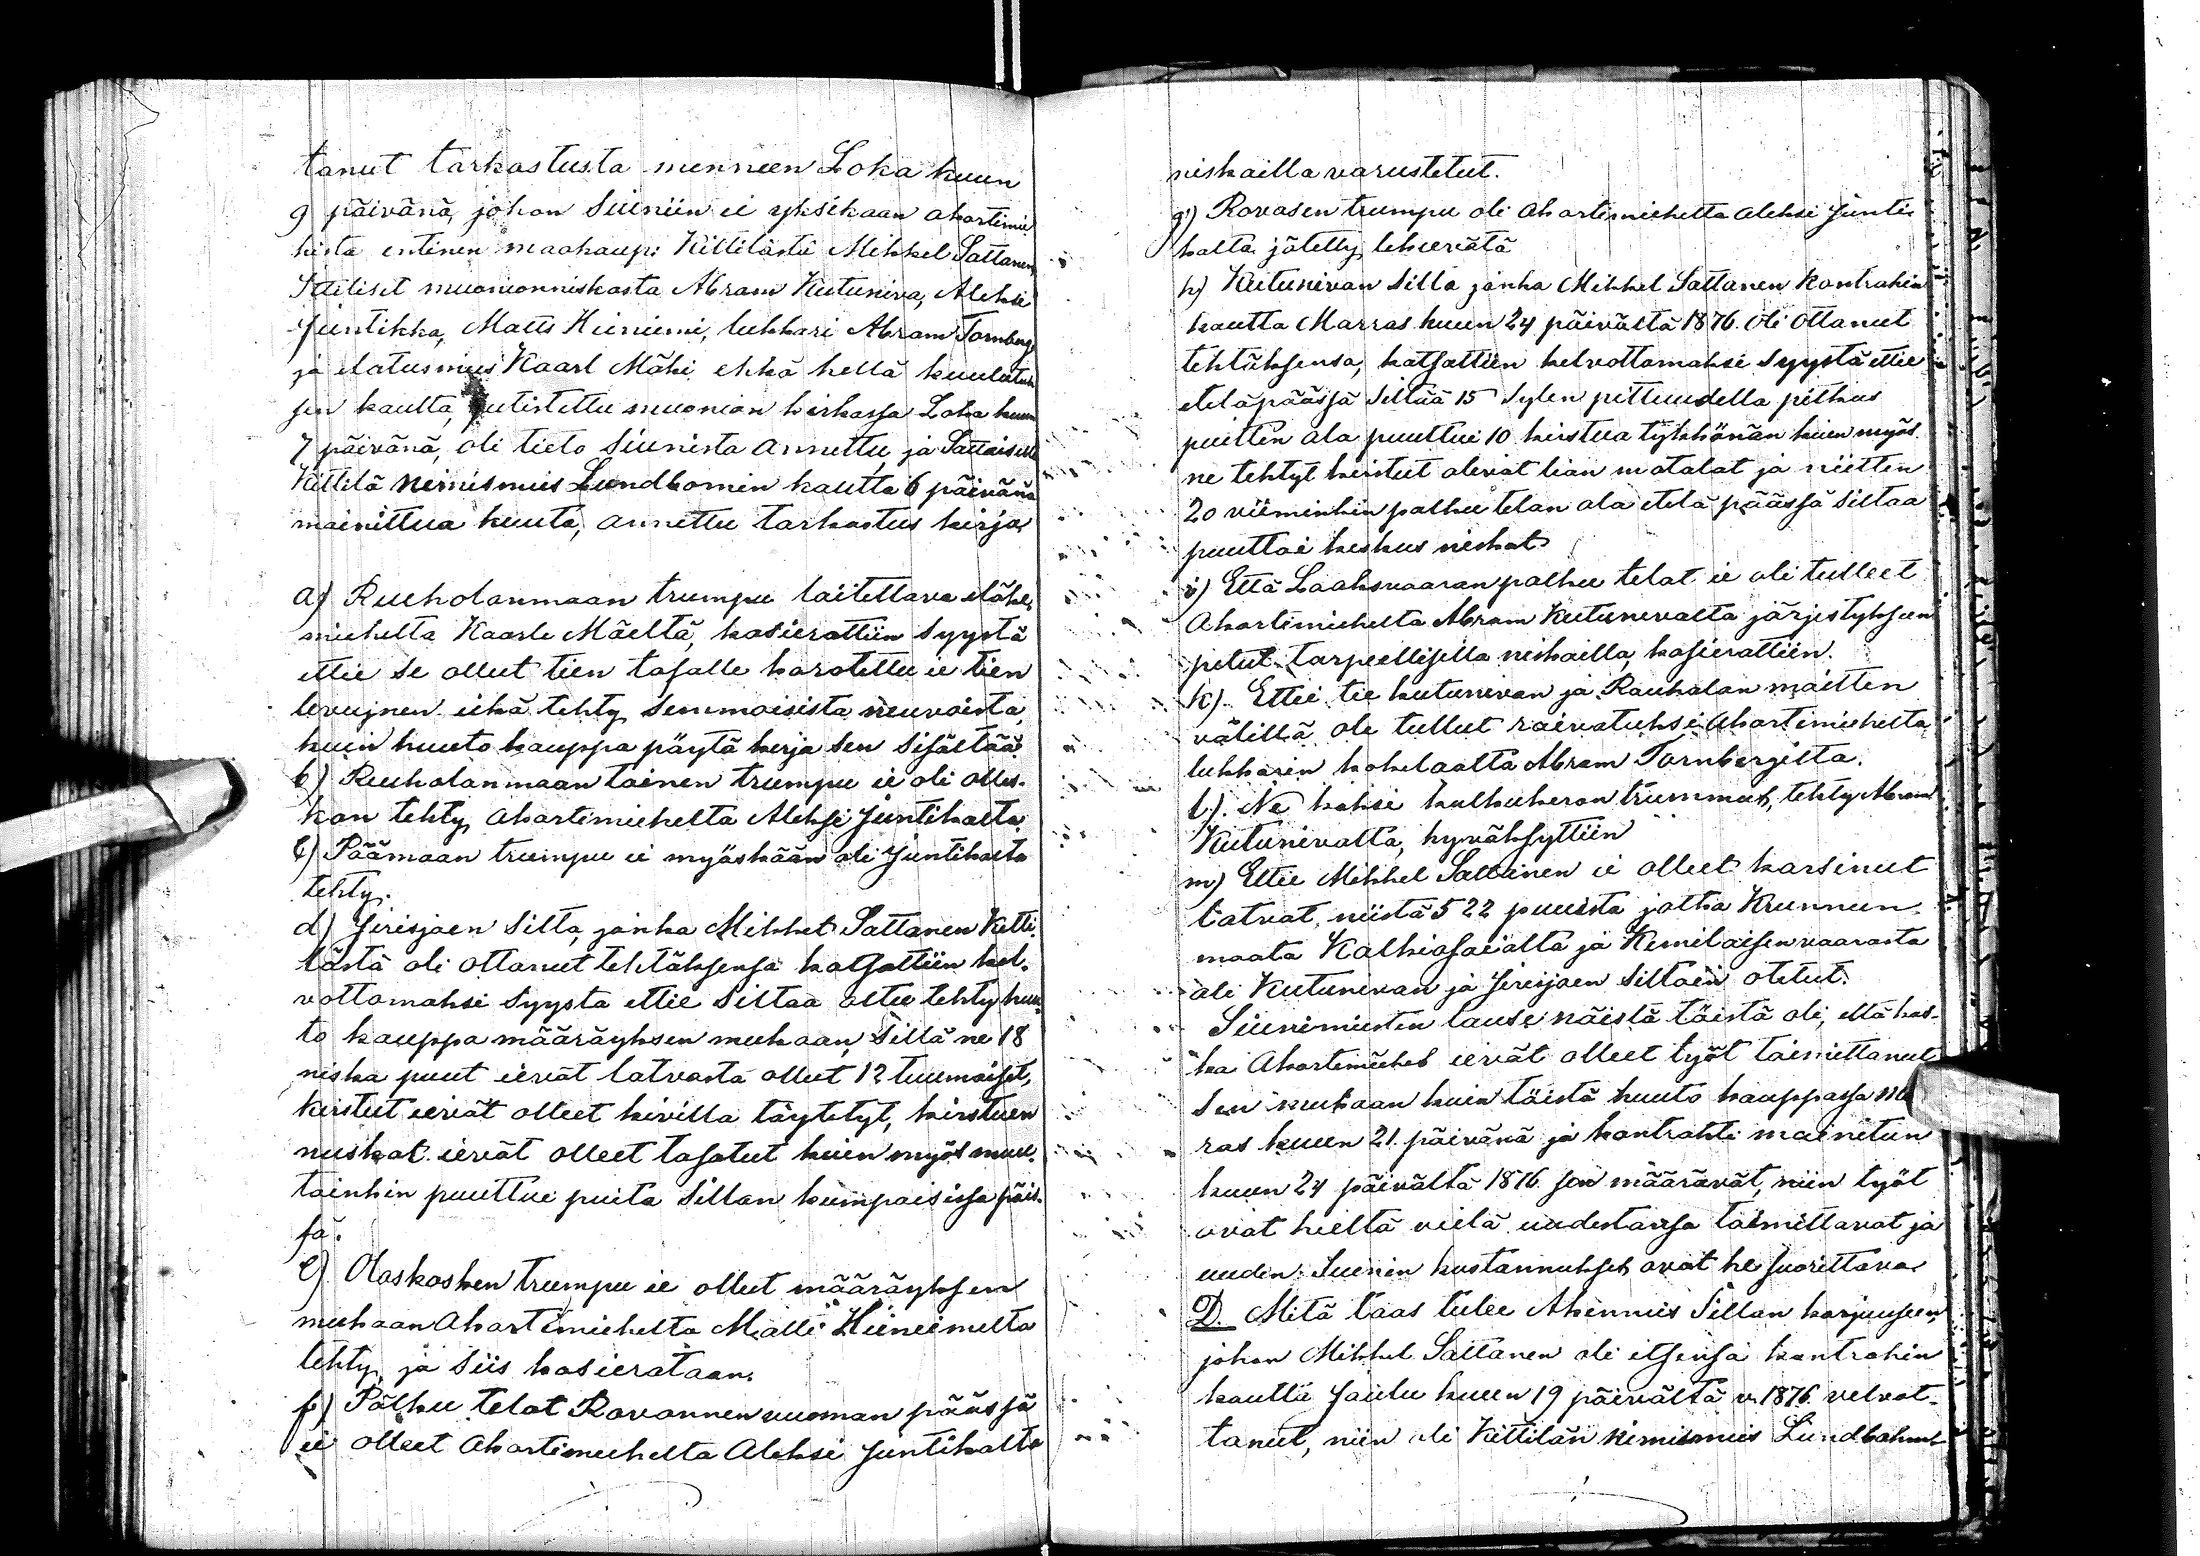 tanut tarkastusta menneen Loka kuun
9 päivänä, johon Siiniin ei yksikään akortimie
histä entinen maakaup: Kittilästä Mikkel Sattanen
Taliliset muonionniskasta Abram Kutuniva, Aleksi
Juntikka, Matts Hieniemi, lukkari Abram Tornberg
ja elatusmies Kaarl Mäki ehkä hellä kuulutuk
sen kautta, jutistettu muonion kirkassa Loka kuun
7 päivänä, oli tieto Siinista annettu, ja Sattaiselle
Kittilä nimismies Lundbomin kautta 6 päivänä
mainittua kuuta, annettu tarkastus kirja,
a) Ruuholanmaan trumpu laitettava eläke,
mieheltä Kaarle Mäeltä, kasierattiin syystä
ettie se ollut tien tasalle karotettu ie tien
levujnen eikä tehty semmoisista neuvoista
kuin huuto kauppa päytä kerja sen sisältää
b) Ruuholanmaan toinen trumpu ie oli ollen-
kan tehty akortimieheltä Aleksi Juntikalta
c) Päämaan trumpu ei myöskään oli Juntikasta
tehty.
d) Jerisjoen Silta, janka Mikkel Sattanen Kitti
lästä oli ottanut tehtäksensä katsottiin kel-
vottomaksi syysta ettie siltaa oltu tehty huu-
to kauppa määräyksen mukaan, Sillä ne 18
niska puut eievät latvasta ollut 12 tuumaiset,
kirstut eievät olleet kivillä täytetyt, kirstuen
nuskat eievät olleet tasatut kuin myös muu-
tainkin puuttue puita Sillan kumpaisissa päis-
sä.
e) Olaskosken trumpu ie ollut määräyksen
mukaan Akortimieheltä Matti Hieneimelta
tehty, ja siis kasierataan.
f) Pölkku telat Rovannenvuoman päässä
ei olleet Akortimieheltä Aleksi Juntikalta
niskailla varustetut.
g) Rovasen trumpu oli akortimieheltä Aleksi Junti-
kalta jätetty tekeevätä
h) Kutunivan silla janka Mikkel Sattanen Kontrahin
kautta Marras kuun 24 päivältä 1876 oli ottanut
tehtäksensa, katsottiin kelvottomaksi syystä ettie
eteläpäässä siltaa 15 Sylen pittuudella pitkus
puitten ala puuttui 10 kirstua tykkönän kuen myös
ne tehtyt kirstut olevat lian matalat ja niitten
20 viiminkin palkku telan ala etelä päässä siltaa
puuttoi keskus niskat
i) Että Laaksvaaran palkku telat ie oli tulleet
Akortimieheltä Abram Kutunevalta järjestyksen
petut tarpeellisilla niskailla, kasierattiin.
k) Ettei tie kutunivan ja Rauhalan maitten
välillä ole tullut raivatuksi Akortimieheltä
lukkarin kokelaalta Abram Tornbergilta.
l). Ne kaksi kulkukeron trummut, tehty Abram
Kutunivalta, hyväksyttiin
m) Ettie Mikkel Sattanen ie olleet karsinut
latvat niistä 522 puusta jotka Krunnun
maata Kalkiosaialta ja Kemilaisenvaarasta
oli Kutunivan ja Jerisjoen siltoin otetut.
Siinimiesten lause näistä töistä oli, että kos-
ka Akortimiehet eievät olleet työt toimittanut
Sen mukaan kuin töistä huuto kauppassa Mar
ras kuun 21 päivänä ja kontrahti mainitun
kuun 24 päivältä 1876 sen määrävät, niin työt
ovat hieltä vielä uudestansa toimittavat ja
uuden Suunin kustannukset ovat he suorittava
D. Mitä taas tulee Akennus Sillan korjuuseen
johon Mikkel Sattanen oli itsensä kontrahin
kautta Joulu kuun 19 päivältä v. 1876 velvot-
tanut, niin oli Kittilän nimismies Lundbohmt